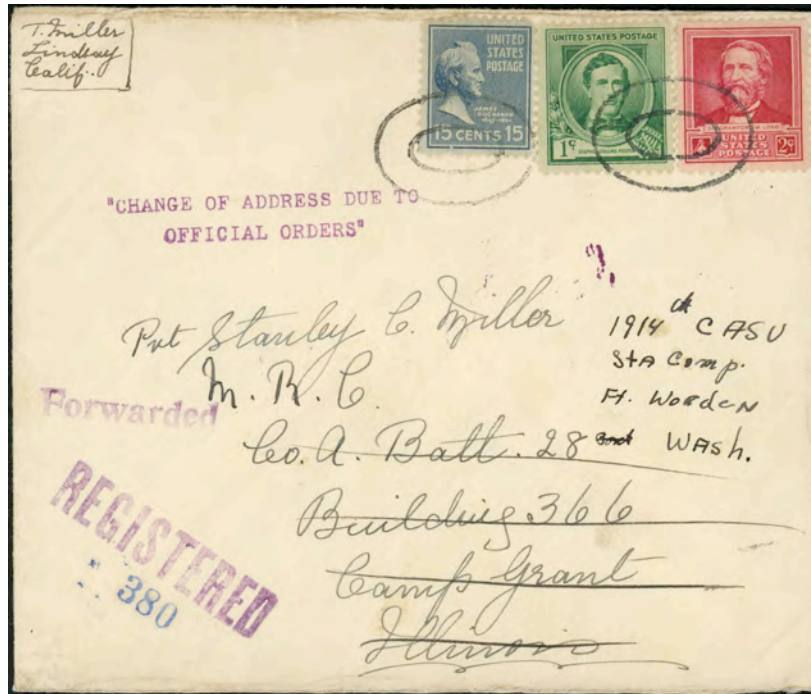 T. Miller
Lindsay
Calif.
UNITED
STATES
POSTAGE
JAMES
BUCHANAN
15 CENTS 15
UNITED STATES POSTAGE
1¢
UNITED
STATES
POSTAGE
2¢
"CHANGE OF ADDRESS DUE TO
OFFICIAL ORDERS"
Pvt Stanley C. Miller
M. R. C.
Co. A. Batt. 28
Building 366
Camp Grant
Illinois
1914th CASU
StA Comp.
Ft. Worden
WASh.
Forwarded
REGISTERED
380